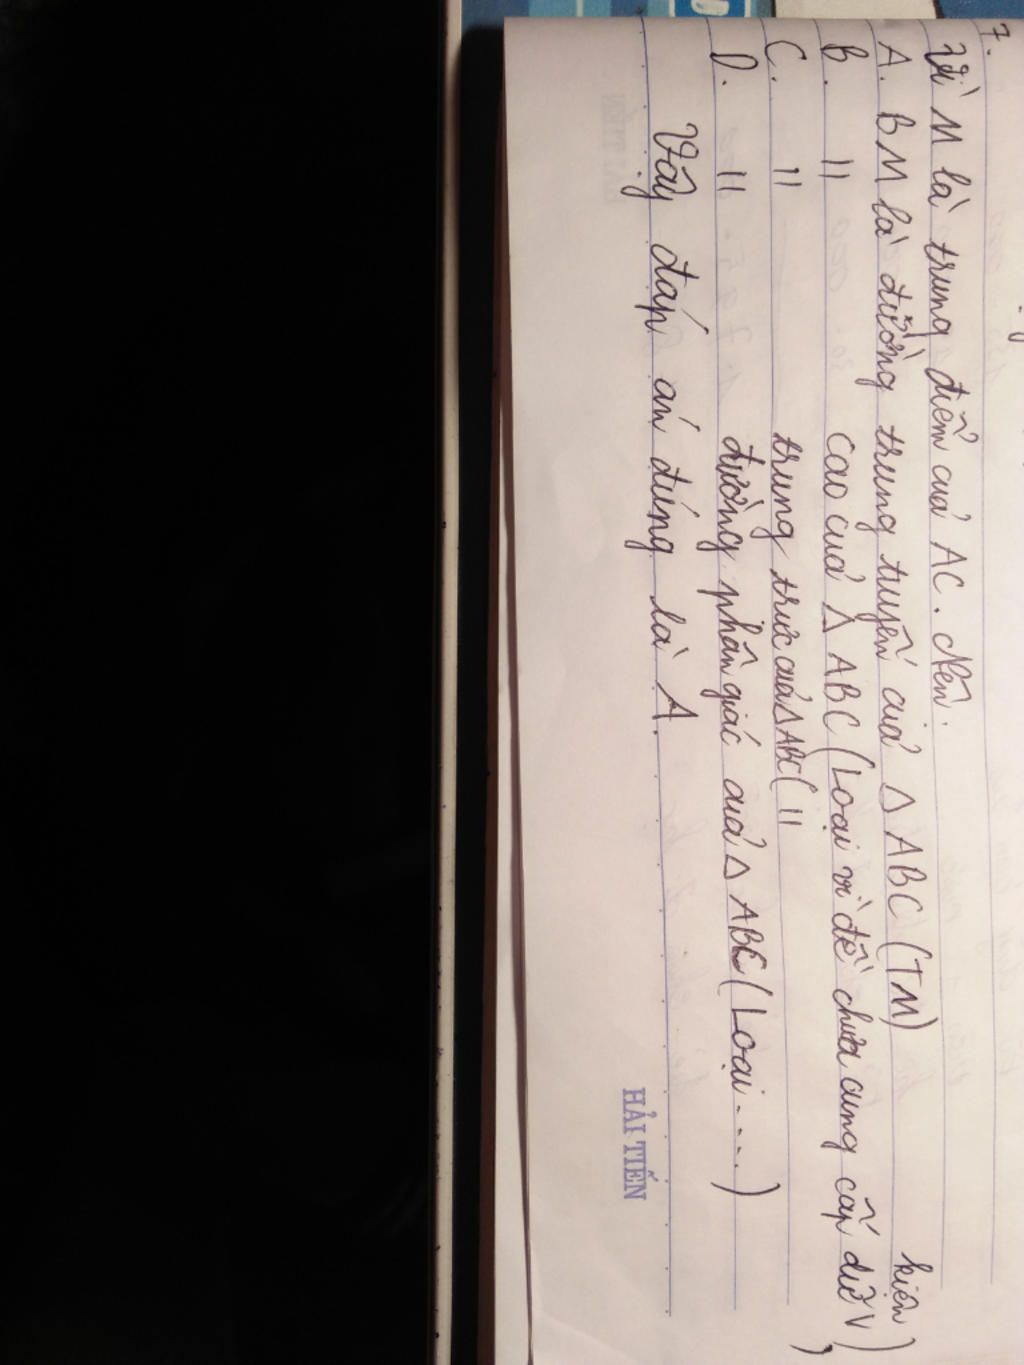 7.
Vì M là trung điểm của AC. Nên.
A. BM là đường trung tuyến của Δ ABC (TM)
B. " cao của Δ ABC (Loại vì đề chưa cung cấp dữ kiện)
C. " trung trực của Δ ABC ( " )
D. " đường phân giác của Δ ABC (Loại....)
Vậy đáp án đúng là A.
HẢI TIẾN